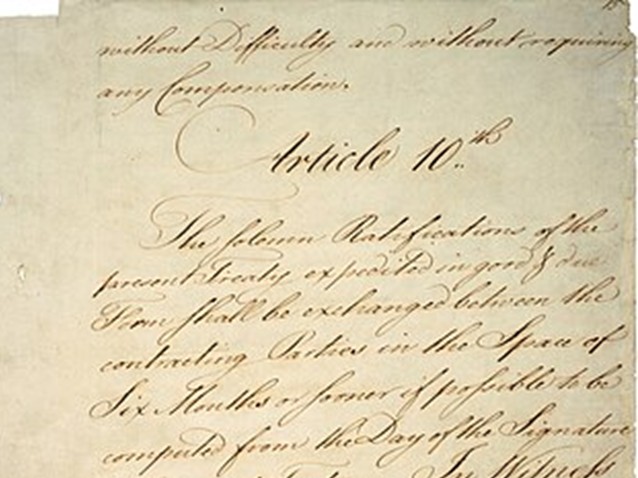 without Difficulty and without requiring
any Compensation.
Article 10..th
The solemn Ratifications of the
present Treaty expedited in good & due
Form shall be exchanged between the
contracting Parties in the Space of
Six Months or sooner if possible to be
computed from the Day of the Signature
In Witness